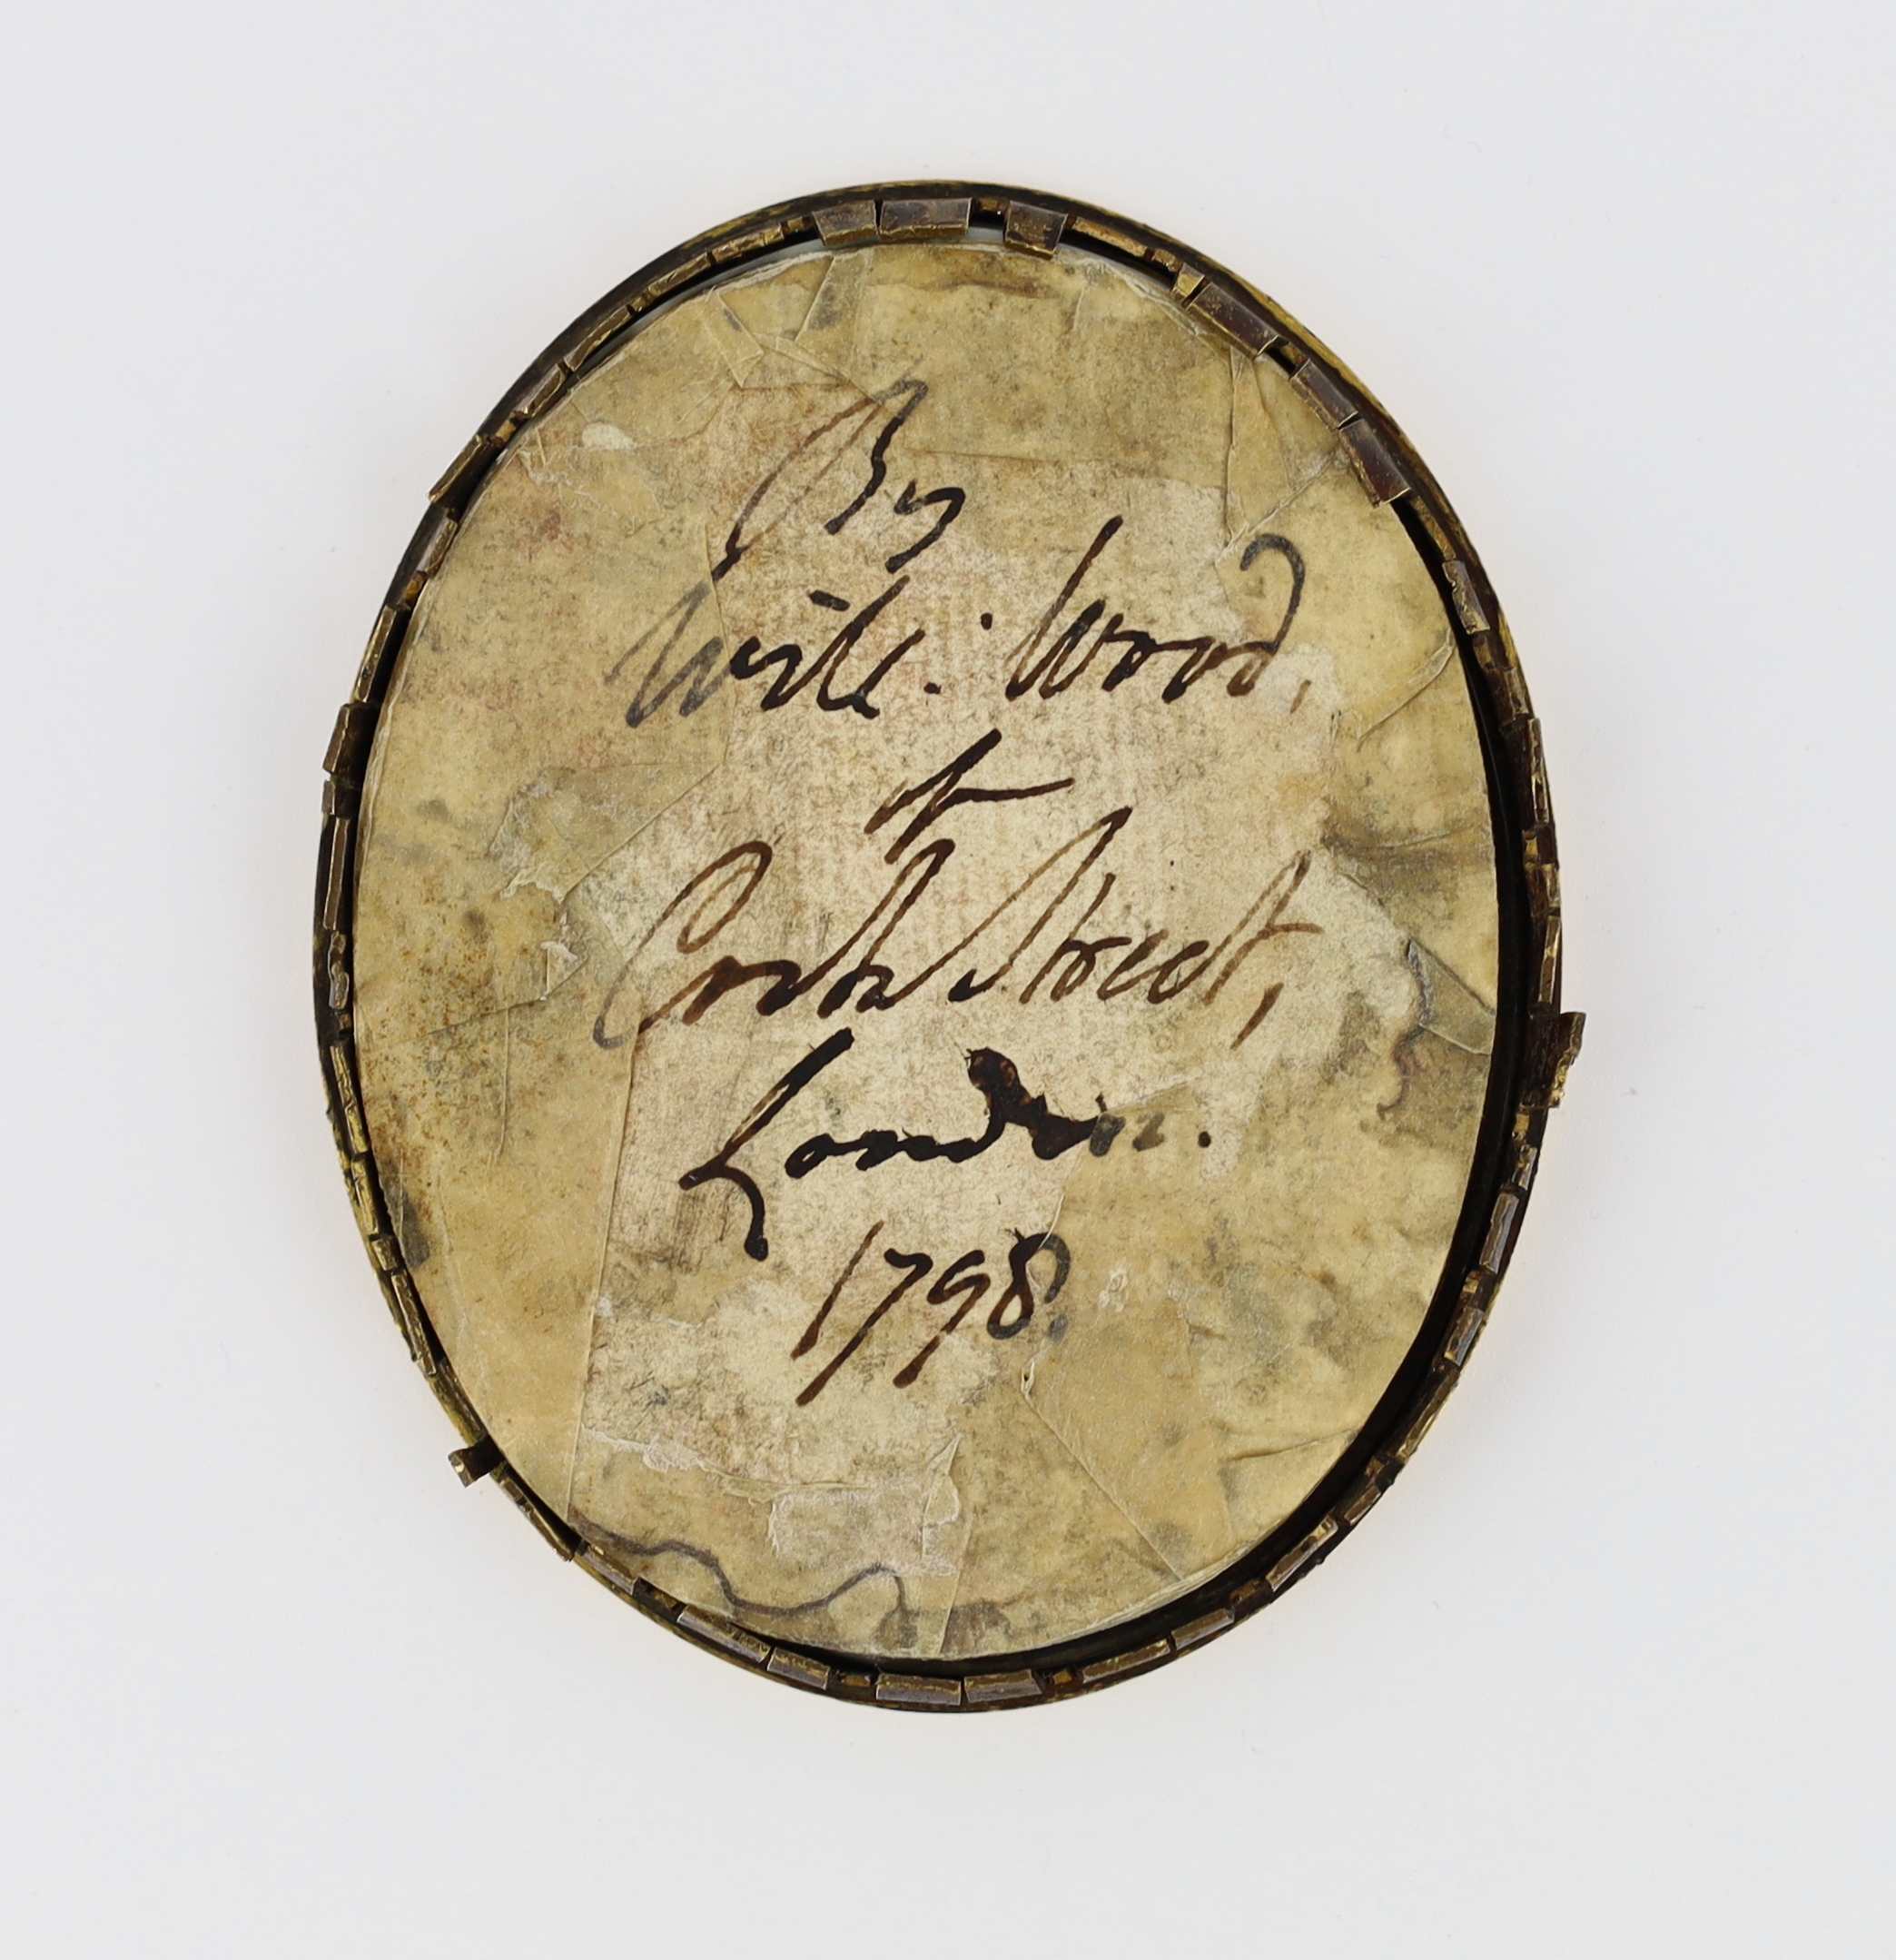 By
Will: Wood,
of
Cork Street,
London.
1798.